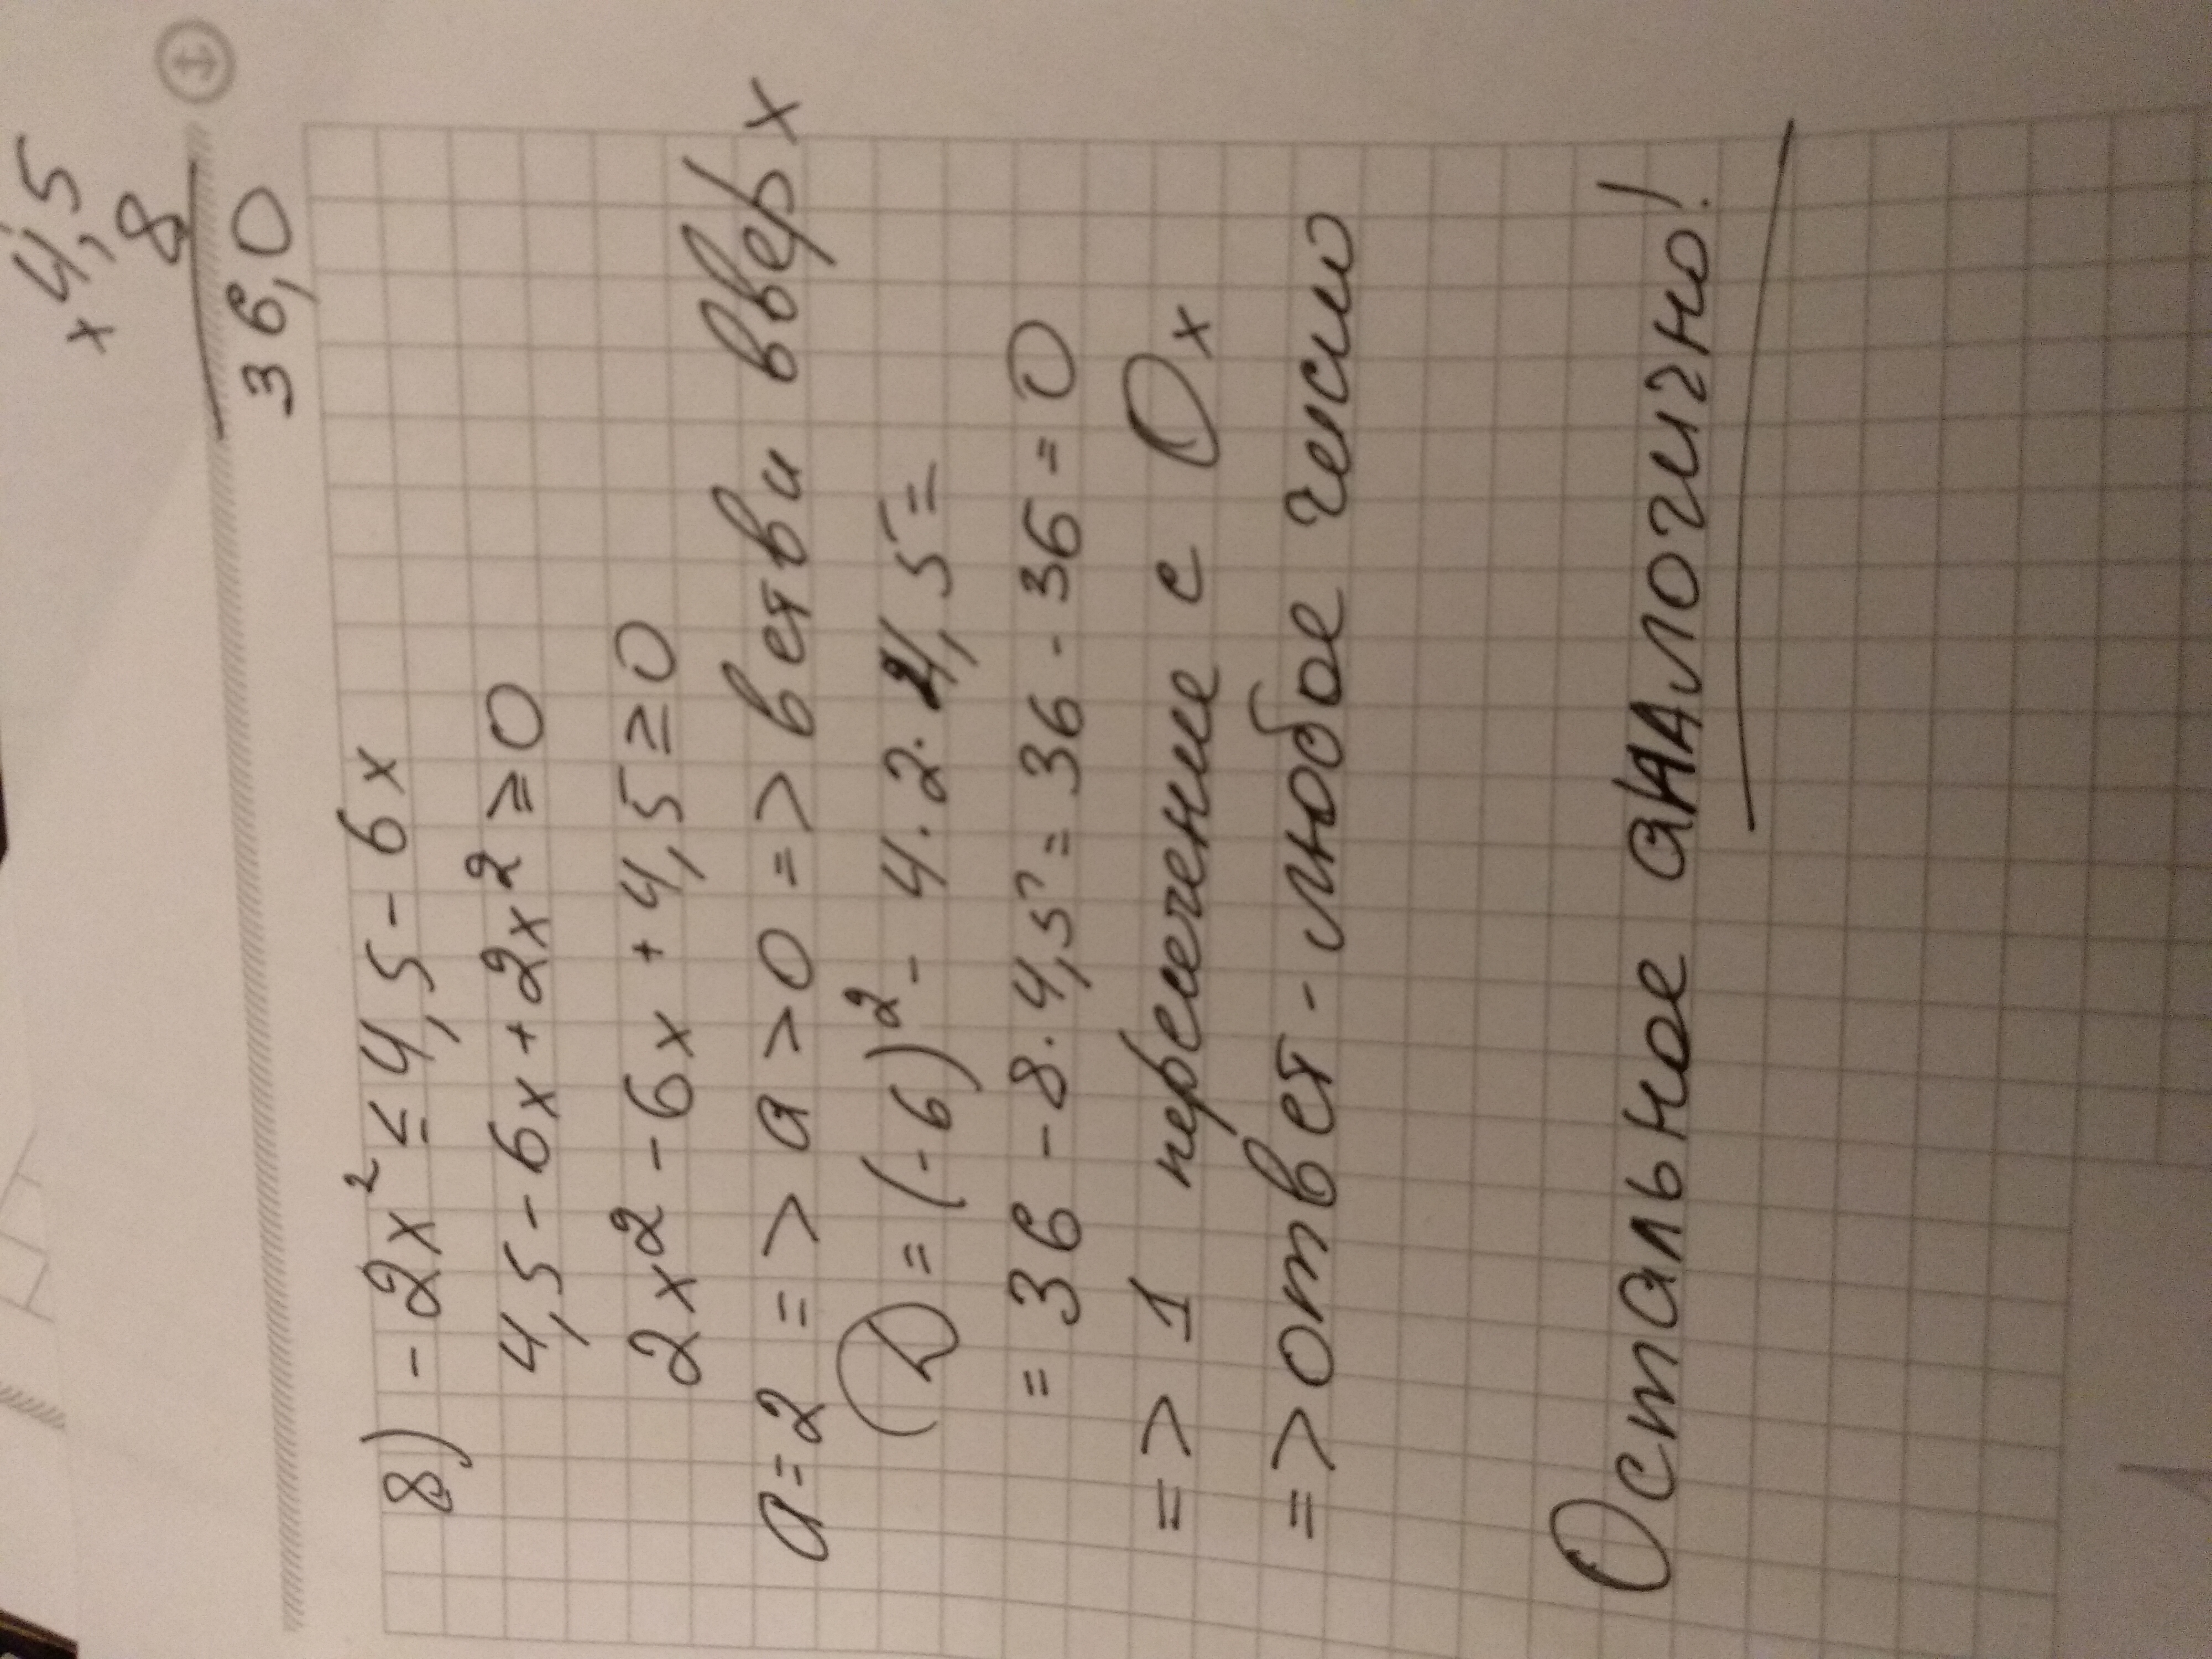 × 4,5
8
36,0
8) -2x² ≤ 4,5 - 6x
4,5 - 6x + 2x² ≥ 0
2x² - 6x + 4,5 ≥ 0
a = 2 => a > 0 => ветви вверх
D = (-6)² - 4 · 2 · 4,5 =
= 36 - 8 · 4,5 = 36 - 36 = 0
=> 1 пересечение с Ox
=> ответ - любое число
Остальное аналогично!